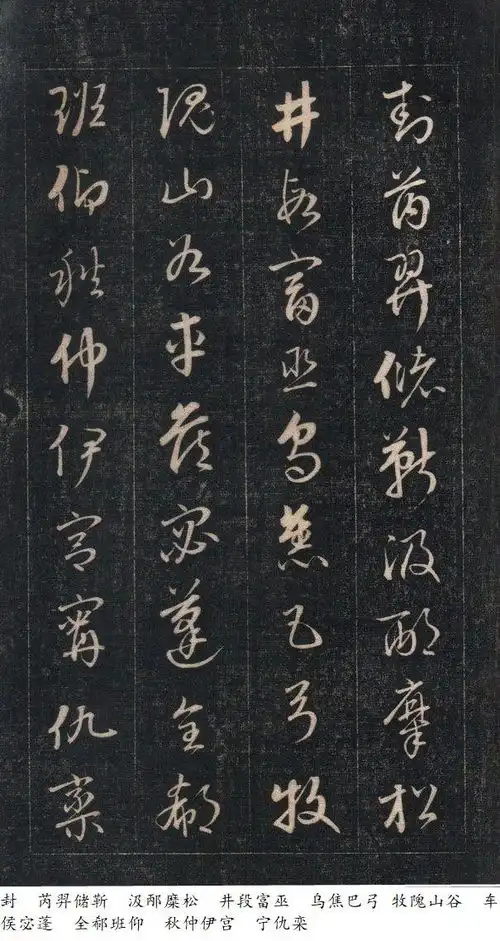 封芮羿儲靳汲邴糜松
井段富巫烏焦巴弓牧
隗山谷車侯宓蓬全郗
班仰秋仲伊宮甯仇欒
封 芮羿储靳 汲邴糜松 井段富巫 乌焦巴弓 牧隗山谷 车
侯宓蓬 全郗班仰 秋仲伊宫 宁仇栾